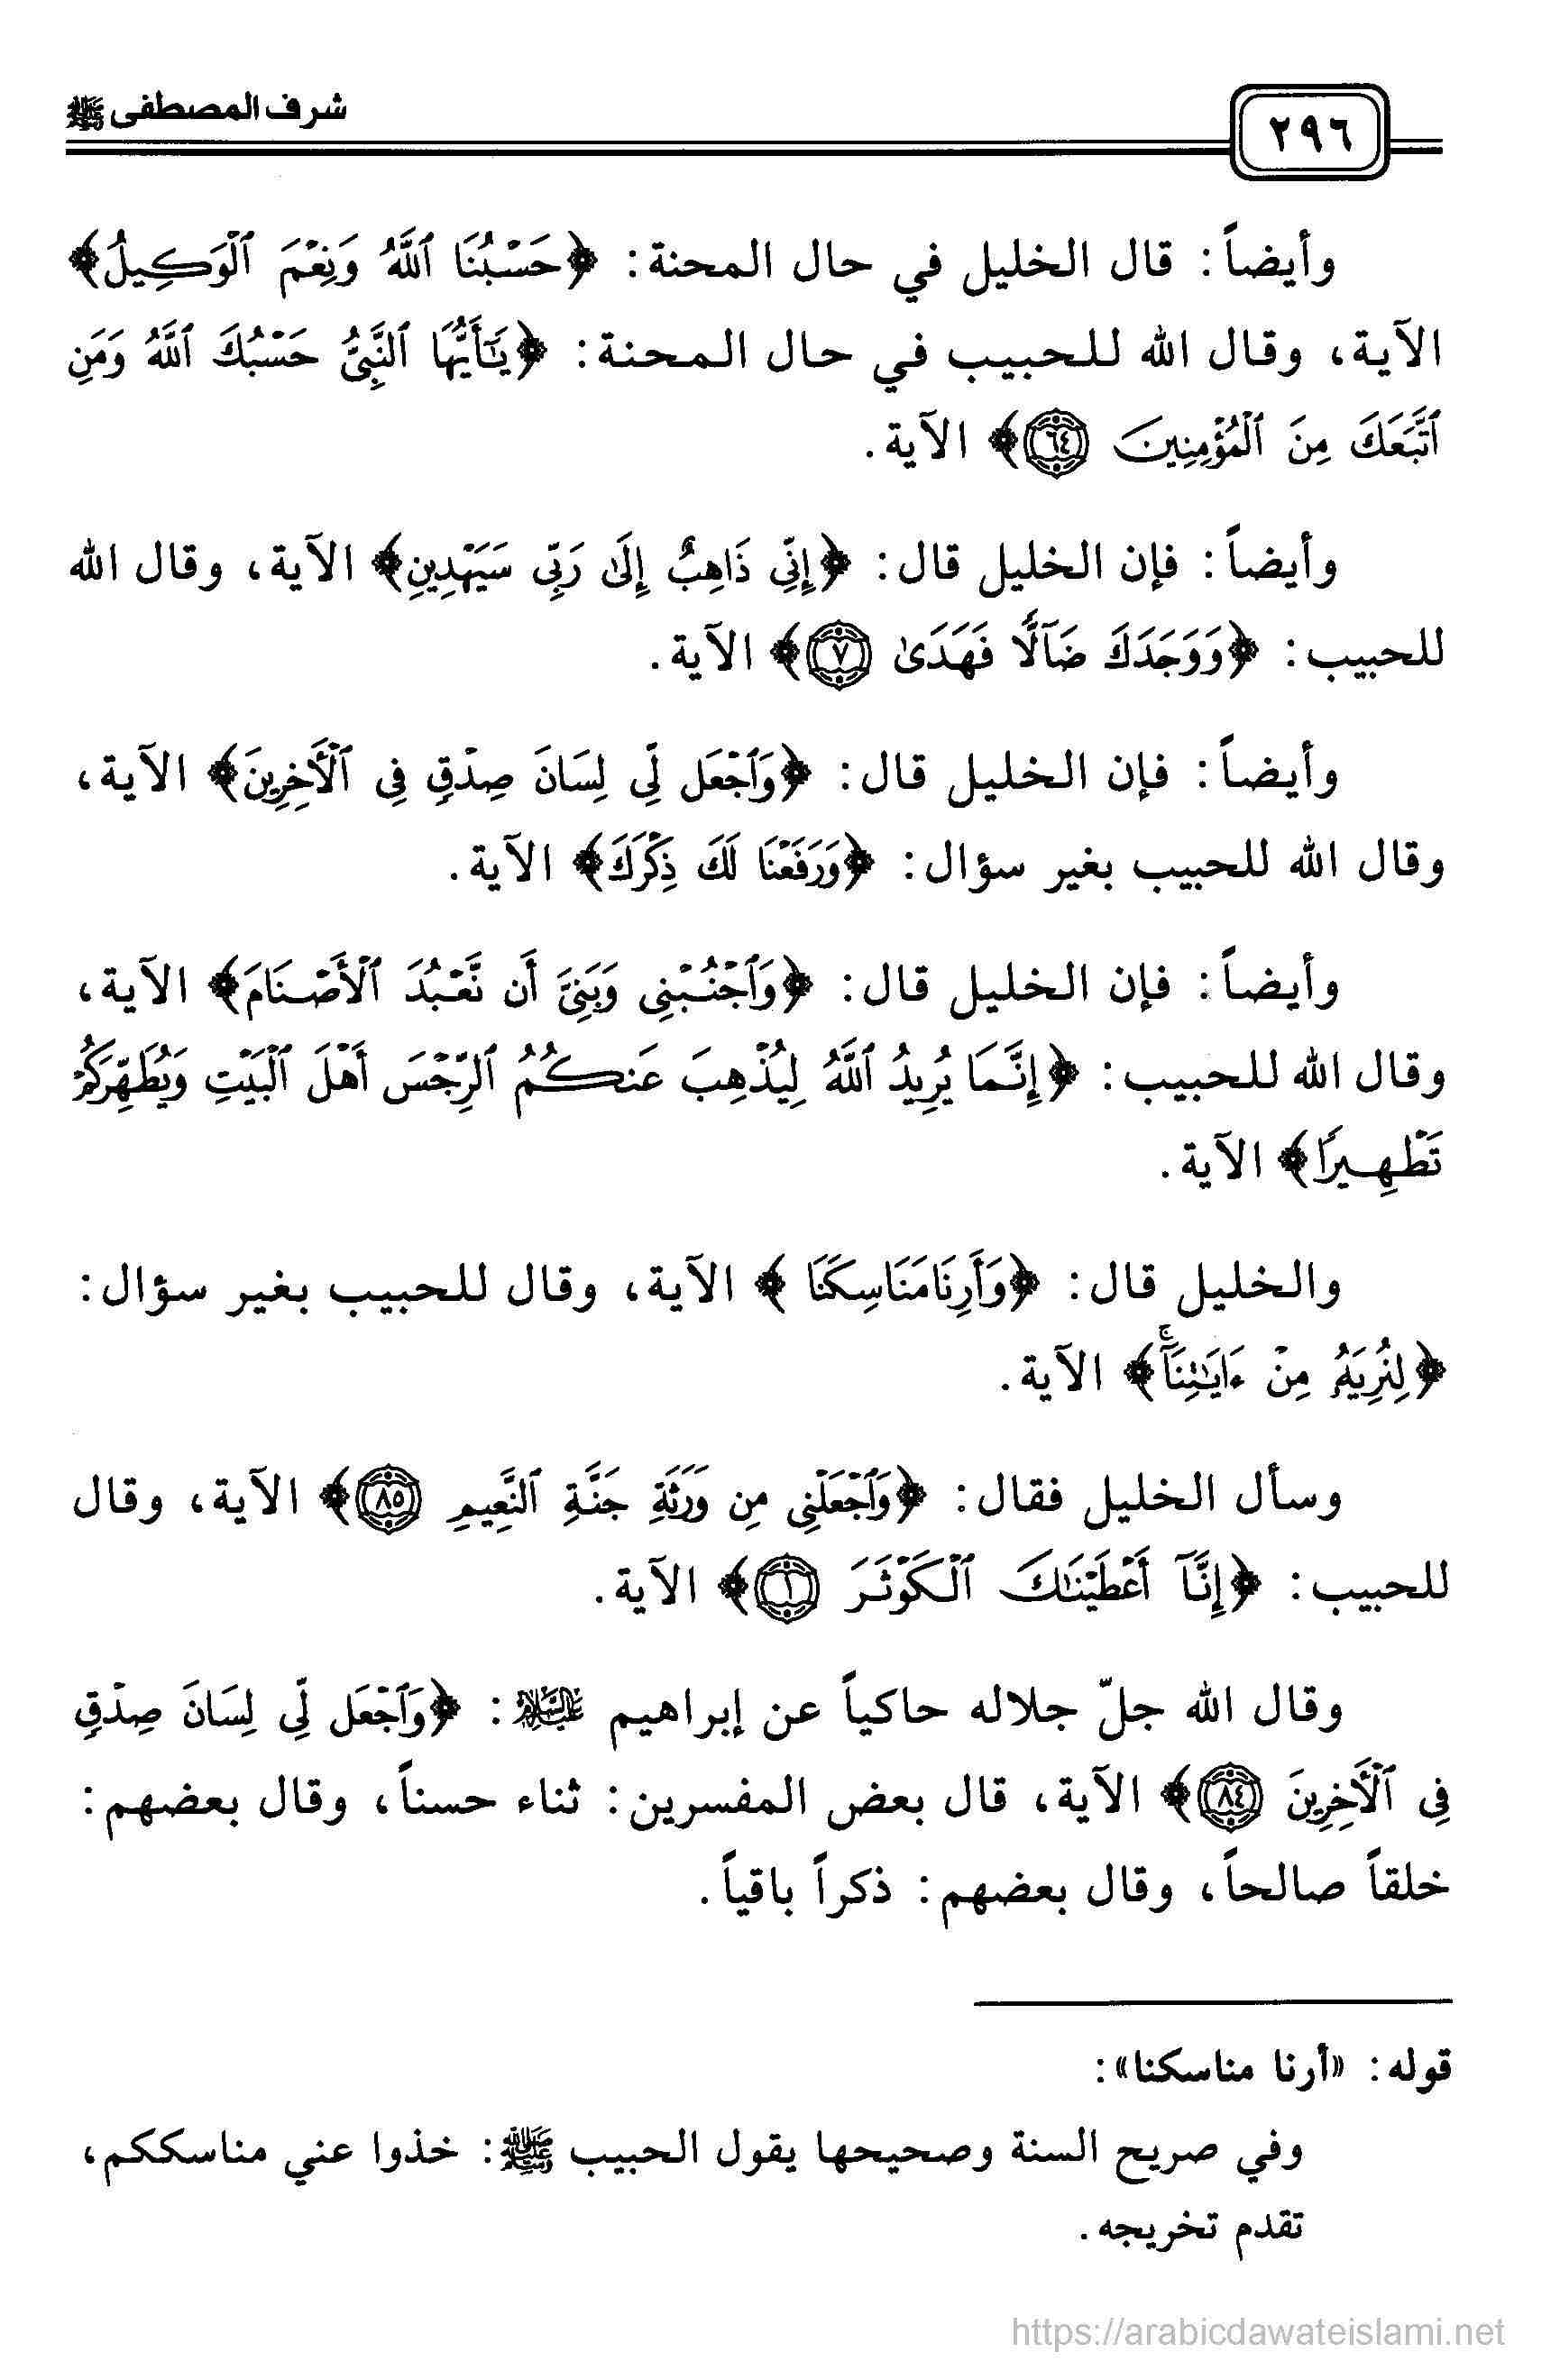 شرف المصطفى ﷺ
٢٩٦
وأيضاً: قال الخليل في حال المحنة: ﴿حَسْبُنَا ٱللَّهُ وَنِعْمَ ٱلْوَكِيلُ﴾
الآية، وقال الله للحبيب في حال المحنة: ﴿يَٰٓأَيُّهَا ٱلنَّبِىُّ حَسْبُكَ ٱللَّهُ وَمَنِ
ٱتَّبَعَكَ مِنَ ٱلْمُؤْمِنِينَ ٦٤﴾ الآية.
وأيضاً: فإن الخليل قال: ﴿إِنِّى ذَاهِبٌ إِلَىٰ رَبِّى سَيَهْدِينِ﴾ الآية، وقال الله
للحبيب: ﴿وَوَجَدَكَ ضَآلًّا فَهَدَىٰ ٧﴾ الآية.
وأيضاً: فإن الخليل قال: ﴿وَٱجْعَل لِّى لِسَانَ صِدْقٍ فِى ٱلْأَخِرِينَ﴾ الآية،
وقال الله للحبيب بغير سؤال: ﴿وَرَفَعْنَا لَكَ ذِكْرَكَ﴾ الآية.
وأيضاً: فإن الخليل قال: ﴿وَٱجْنُبْنِى وَبَنِىَّ أَن نَّعْبُدَ ٱلْأَصْنَامَ﴾ الآية،
وقال الله للحبيب: ﴿إِنَّمَا يُرِيدُ ٱللَّهُ لِيُذْهِبَ عَنكُمُ ٱلرِّجْسَ أَهْلَ ٱلْبَيْتِ وَيُطَهِّرَكُمْ
تَطْهِيرًا﴾ الآية.
والخليل قال: ﴿وَأَرِنَا مَنَاسِكَنَا﴾ الآية، وقال للحبيب بغير سؤال:
﴿لِنُرِيَهُۥ مِنْ ءَايَٰتِنَآ ۚ﴾ الآية.
وسأل الخليل فقال: ﴿وَٱجْعَلْنِى مِن وَرَثَةِ جَنَّةِ ٱلنَّعِيمِ ٨٥﴾ الآية، وقال
للحبيب: ﴿إِنَّآ أَعْطَيْنَٰكَ ٱلْكَوْثَرَ ١﴾ الآية.
وقال الله جلّ جلاله حاكياً عن إبراهيم عليه السلام: ﴿وَٱجْعَل لِّى لِسَانَ صِدْقٍ
فِى ٱلْأَخِرِينَ ٨٤﴾ الآية، قال بعض المفسرين: ثناء حسناً، وقال بعضهم:
خلقاً صالحاً، وقال بعضهم: ذكراً باقياً.
قوله: «أرنا مناسكنا»:
وفي صريح السنة وصحيحها يقول الحبيب ﷺ: خذوا عني مناسككم،
تقدم تخريجه.
https://arabicdawateislami.net